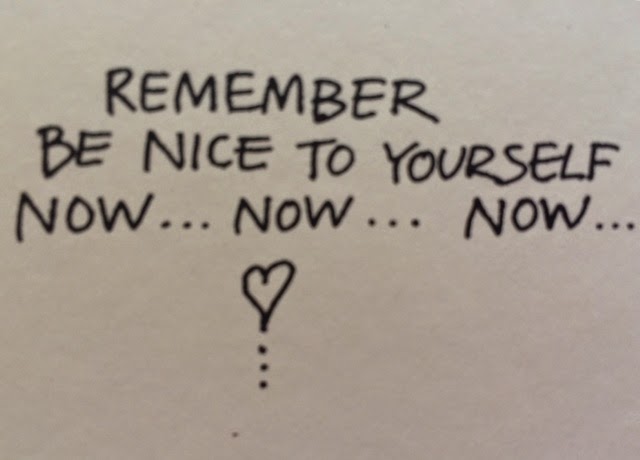 REMEMBER
BE NICE TO YOURSELF
NOW... NOW... NOW...